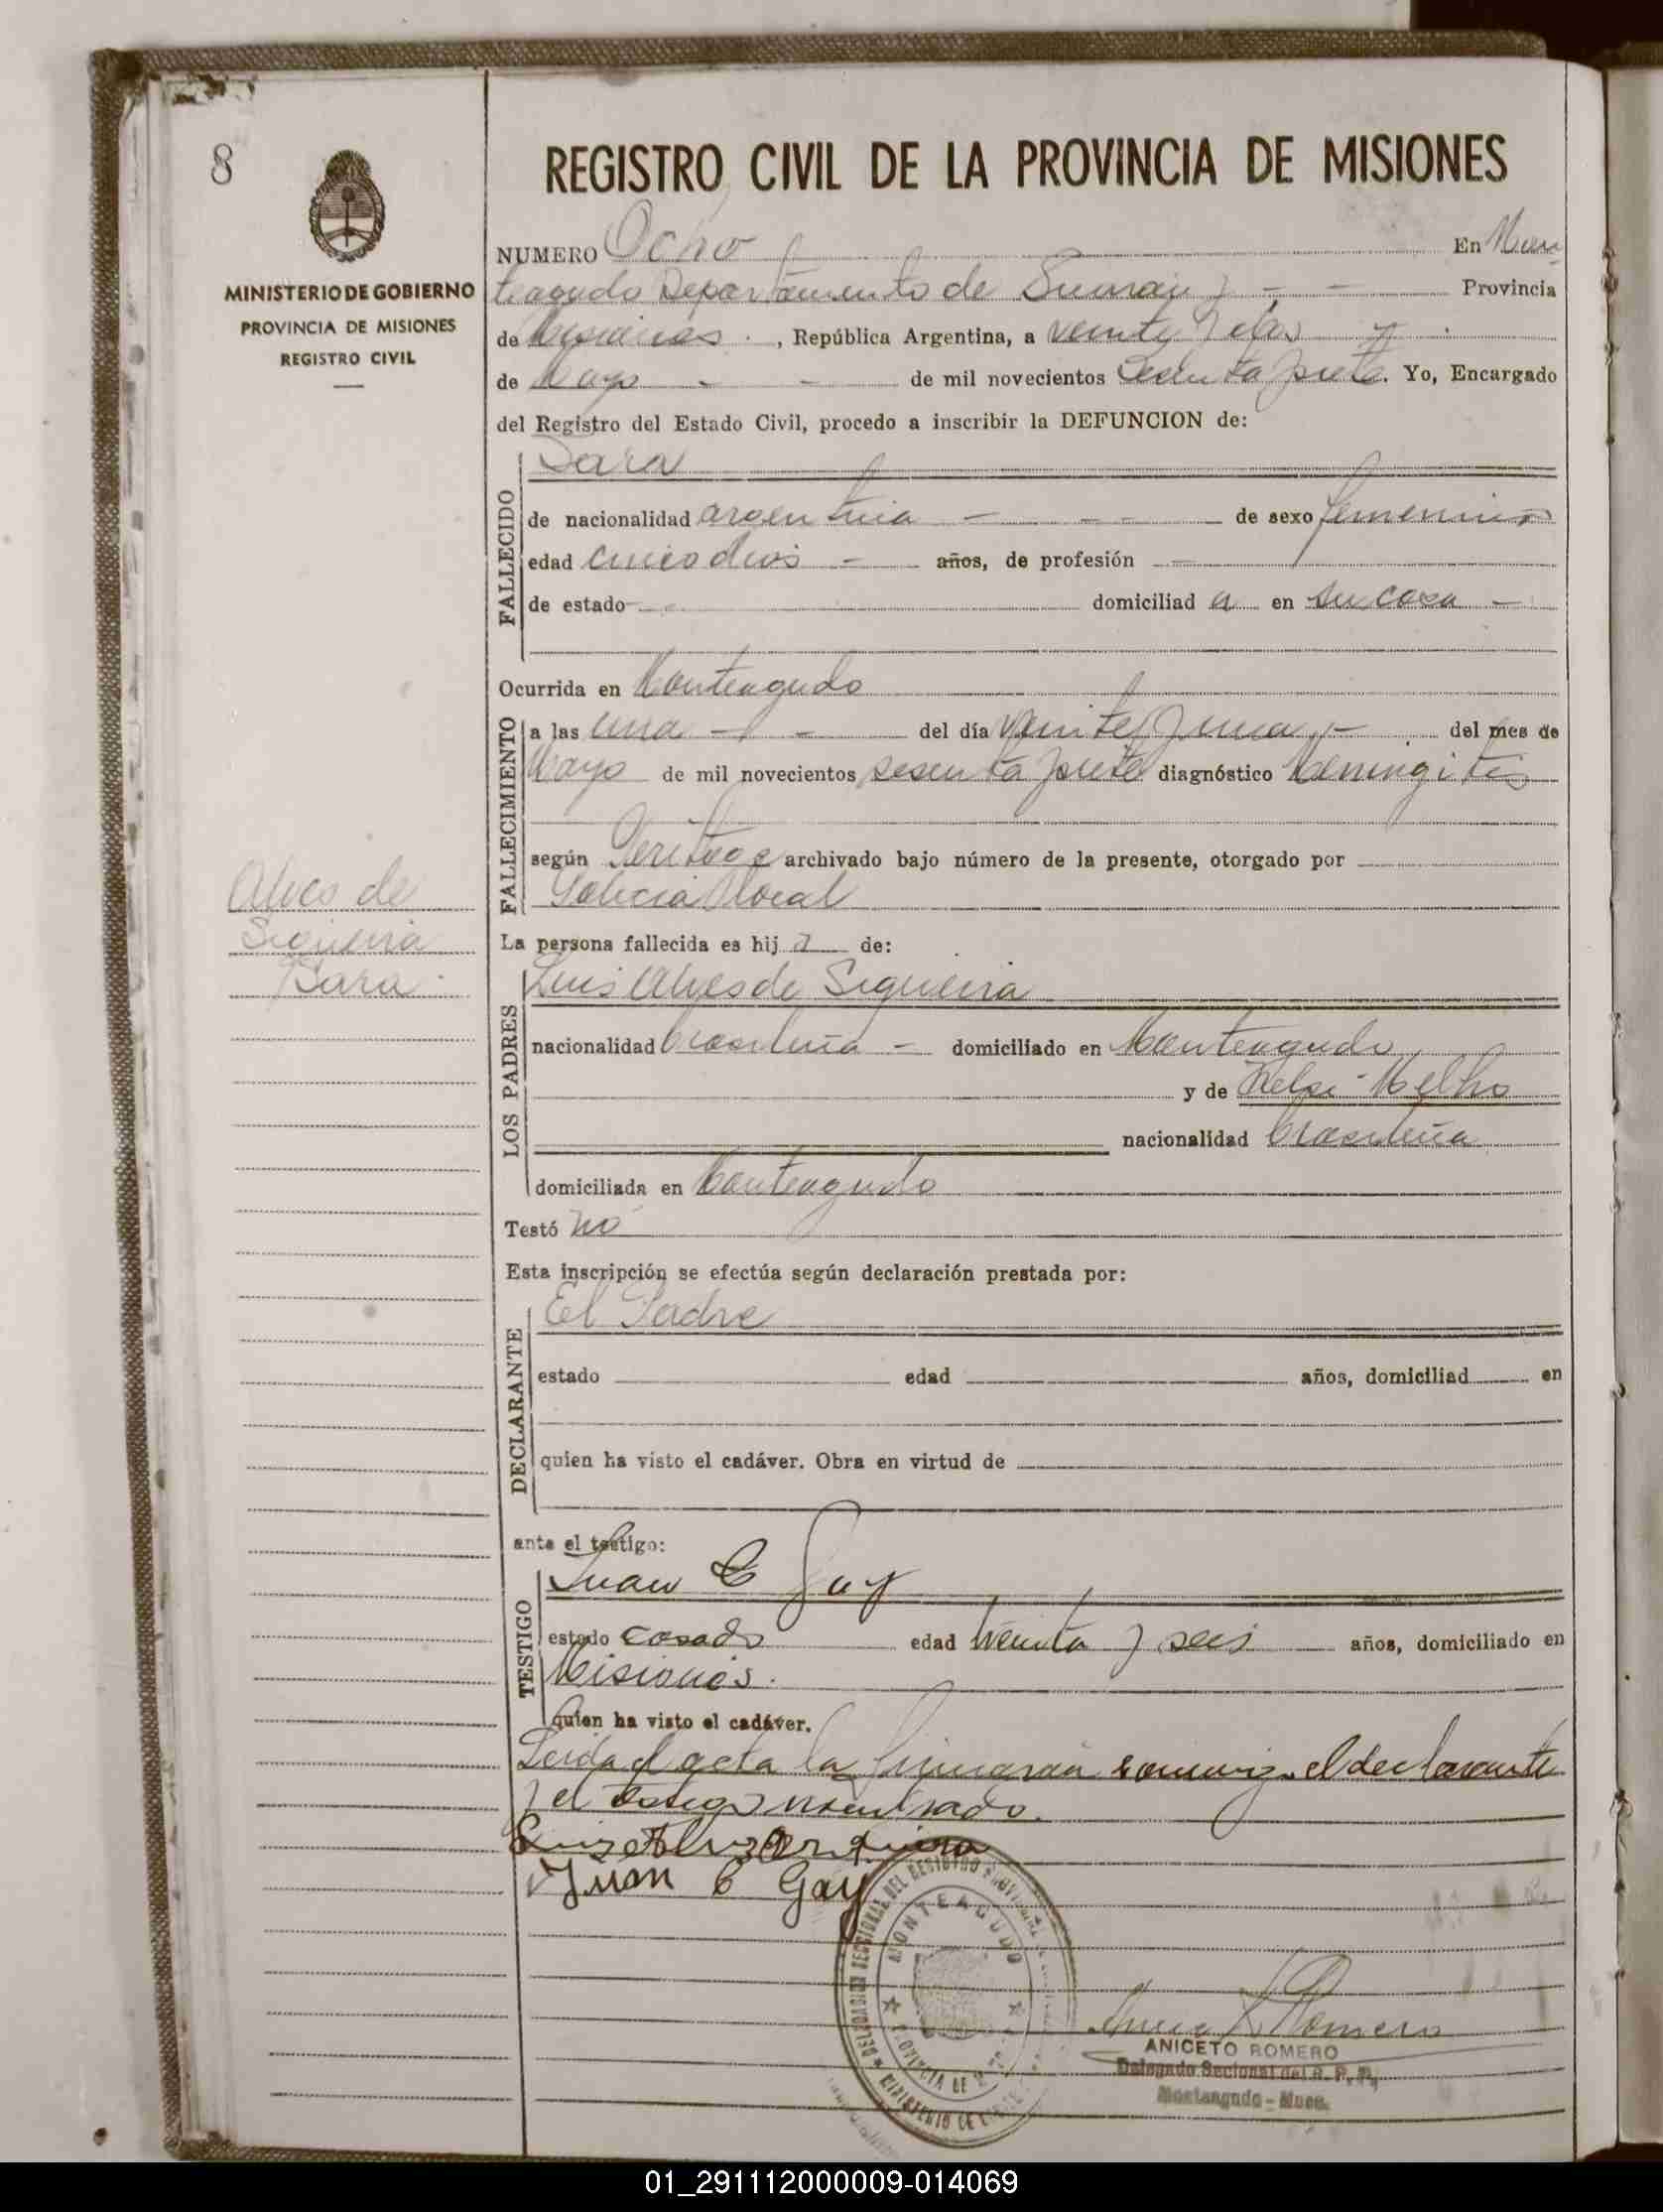 8
MINISTERIO DE GOBIERNO
PROVINCIA DE MISIONES
REGISTRO CIVIL
Alves de
Siqueira
Sara
REGISTRO CIVIL DE LA PROVINCIA DE MISIONES
NUMERO Ocho En Mon
teagudo Departamento de Provincia
de Misiones, República Argentina, a veinte y dos
de Mayo de mil novecientos sesenta y siete. Yo, Encargado
del Registro del Estado Civil, procedo a inscribir la DEFUNCION de:
FALLECIDO
Sara
de nacionalidad argentina de sexo femenino
edad cinco dias años, de profesión
de estado domiciliad a en su casa
Ocurrida en Monteagudo
FALLECIMIENTO
a las una del día veinte y una del mes de
Mayo de mil novecientos sesenta y siete diagnóstico Meningitis
según archivado bajo número de la presente, otorgado por
Policia local
La persona fallecida es hij a de:
LOS PADRES
Luis Alves de Siqueira
nacionalidad brasileña domiciliado en Monteagudo
y de Melho
nacionalidad brasileña
domiciliada en Monteagudo
Testó no
Esta inscripción se efectúa según declaración prestada por:
DECLARANTE
El Padre
estado edad años, domiciliad en
quien ha visto el cadáver. Obra en virtud de
ante el testigo:
TESTIGO
Juan C Gay
estado casado edad treinta y seis años, domiciliado en
Misiones.
quien ha visto el cadáver.
Leida el acta la firmaran conmigo el declarante
y el testigo mencionado.
Juan C Gay
DELEGACION SECCIONAL DEL REGISTRO PROVINCIAL
MONTEAGUDO
PROVINCIA DE
MINISTERIO DE
Romero
ANICETO ROMERO
Delegado Seccional del R. P. P.
Monteagudo - Mnes.
01_291112000009-014069